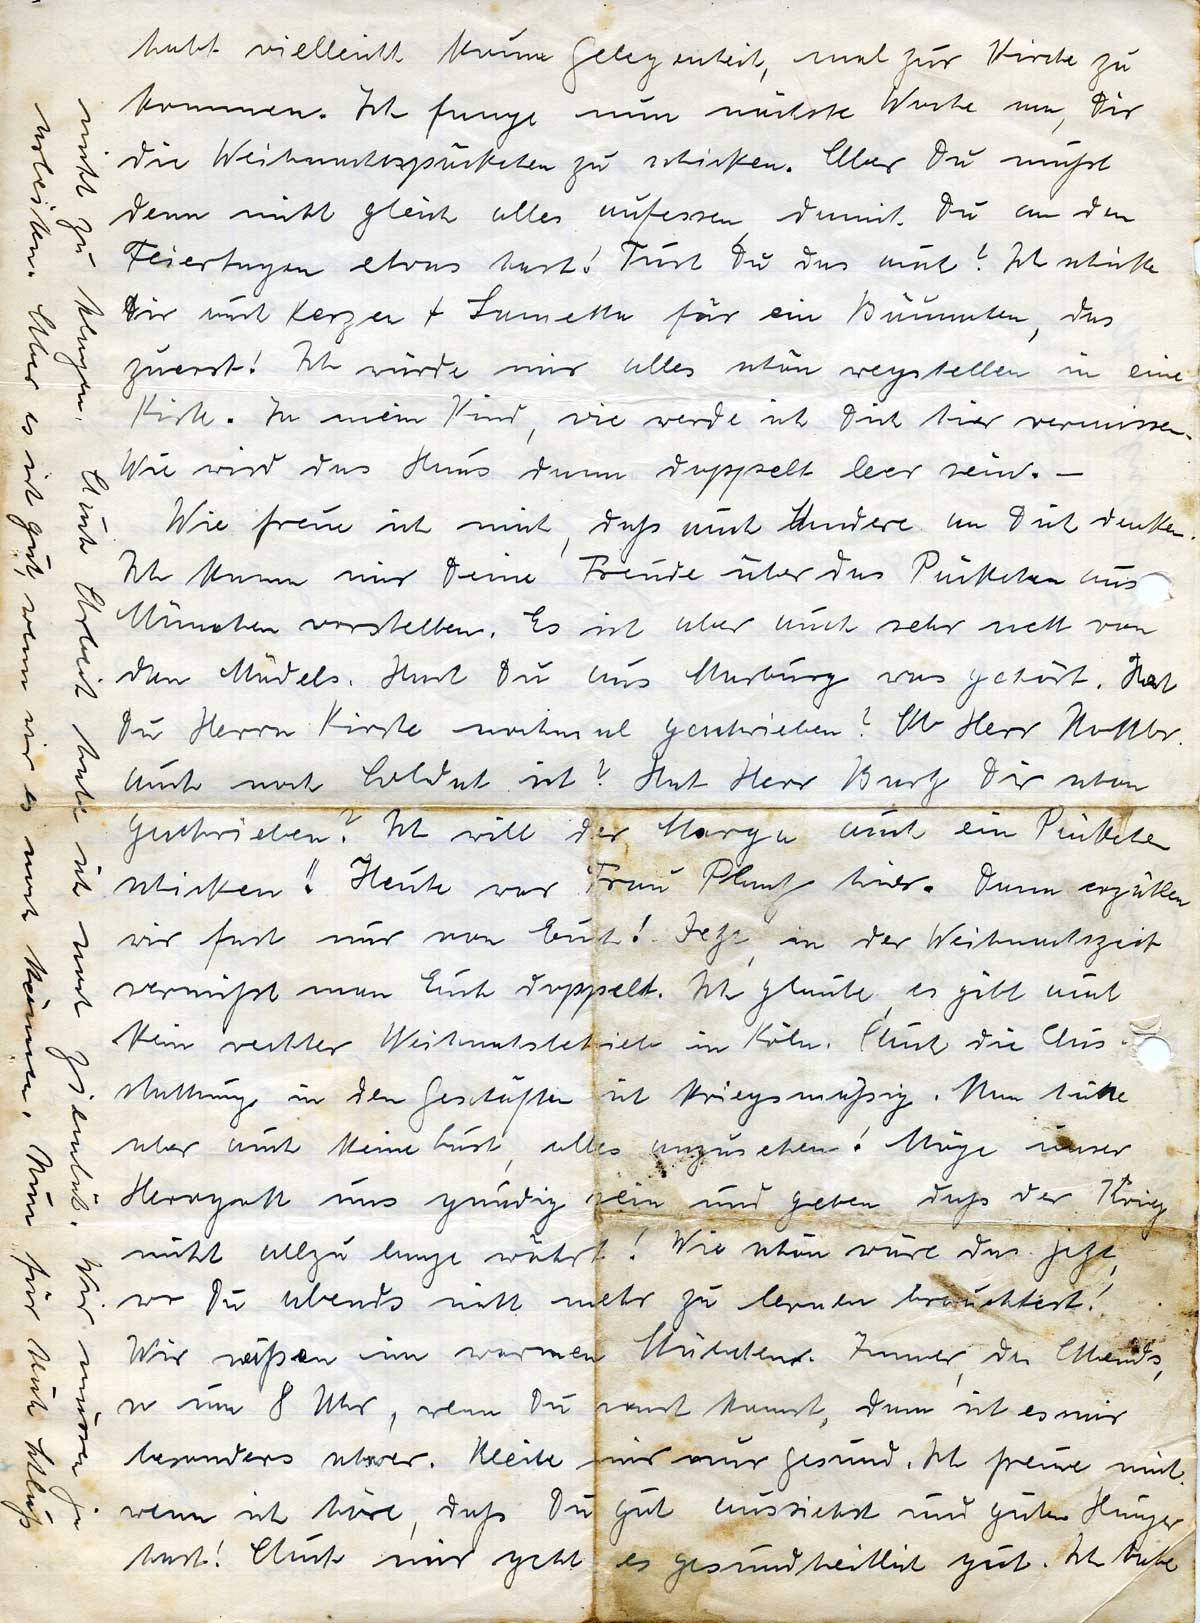 habt vielleicht kaum Gelegenheit, mal zur Kirche zu
kommen. Ich fange nun nächste Woche an, Dir
die Weihnachtspäckchen zu schicken. Aber Du mußt
denn nicht gleich alles aufessen, damit Du an den
Feiertagen etwas hast! Tust Du das auch? Ich schicke
Dir auch Kerzen + Lametta für ein Bäumchen, das
zuerst! Ich würde mir alles schön wegstellen in eine
Kiste. Ja mein Kind, wie werde ich Dich hier vermissen.
Wie wird das Haus dann doppelt leer sein. –
Wie freue ich mich, daß auch Andere an Dich denken.
Ich kann mir Deine Freude über das Päckchen aus
München vorstellen. Es ist aber auch sehr nett von
den Mädels. Hast Du aus Marburg was gehört. Hat
Du Herrn Kirche nochmal geschrieben? Ob Herr
auch noch Soldat ist? Hat Herr Dir schon
geschrieben? Ich will der Marga auch ein Päckchen
schicken! Heute war Frau hier. Dann erzählen
wir fast nur von Euch! Jetzt, in der Weihnachtszeit
vermißt man Euch doppelt. Ich glaube, es gibt auch
kein rechter Weihnachtsbetrieb in Köln. Auch die Aus-
stattung in den Geschäften ist kriegsmäßig. Man hätte
aber auch keine Lust, alles anzusehen! Möge unser
Herrgott uns gnädig sein und geben daß der Krieg
nicht allzu lange währt! Wie schön wäre das jetzt,
wo Du abends nicht mehr zu lernen brauchtest!
Wir säßen im warmen Stübchen. Immer, des Abends,
so um 8 Uhr, wenn Du sonst kamst, dann ist es mir
besonders schwer. Bleibe mir nur gesund. Ich freue mich
wenn ich höre, daß Du gut aussiehst und guten Hunger
hast! Auch mir geht es gesundheitlich gut. Ich habe
nicht zu klagen. Auch Arbeit habe ich noch ziemlich. Wir müssen ja
arbeiten. Aber es ist gut, wenn wir es noch können. Nun für heute Schluß